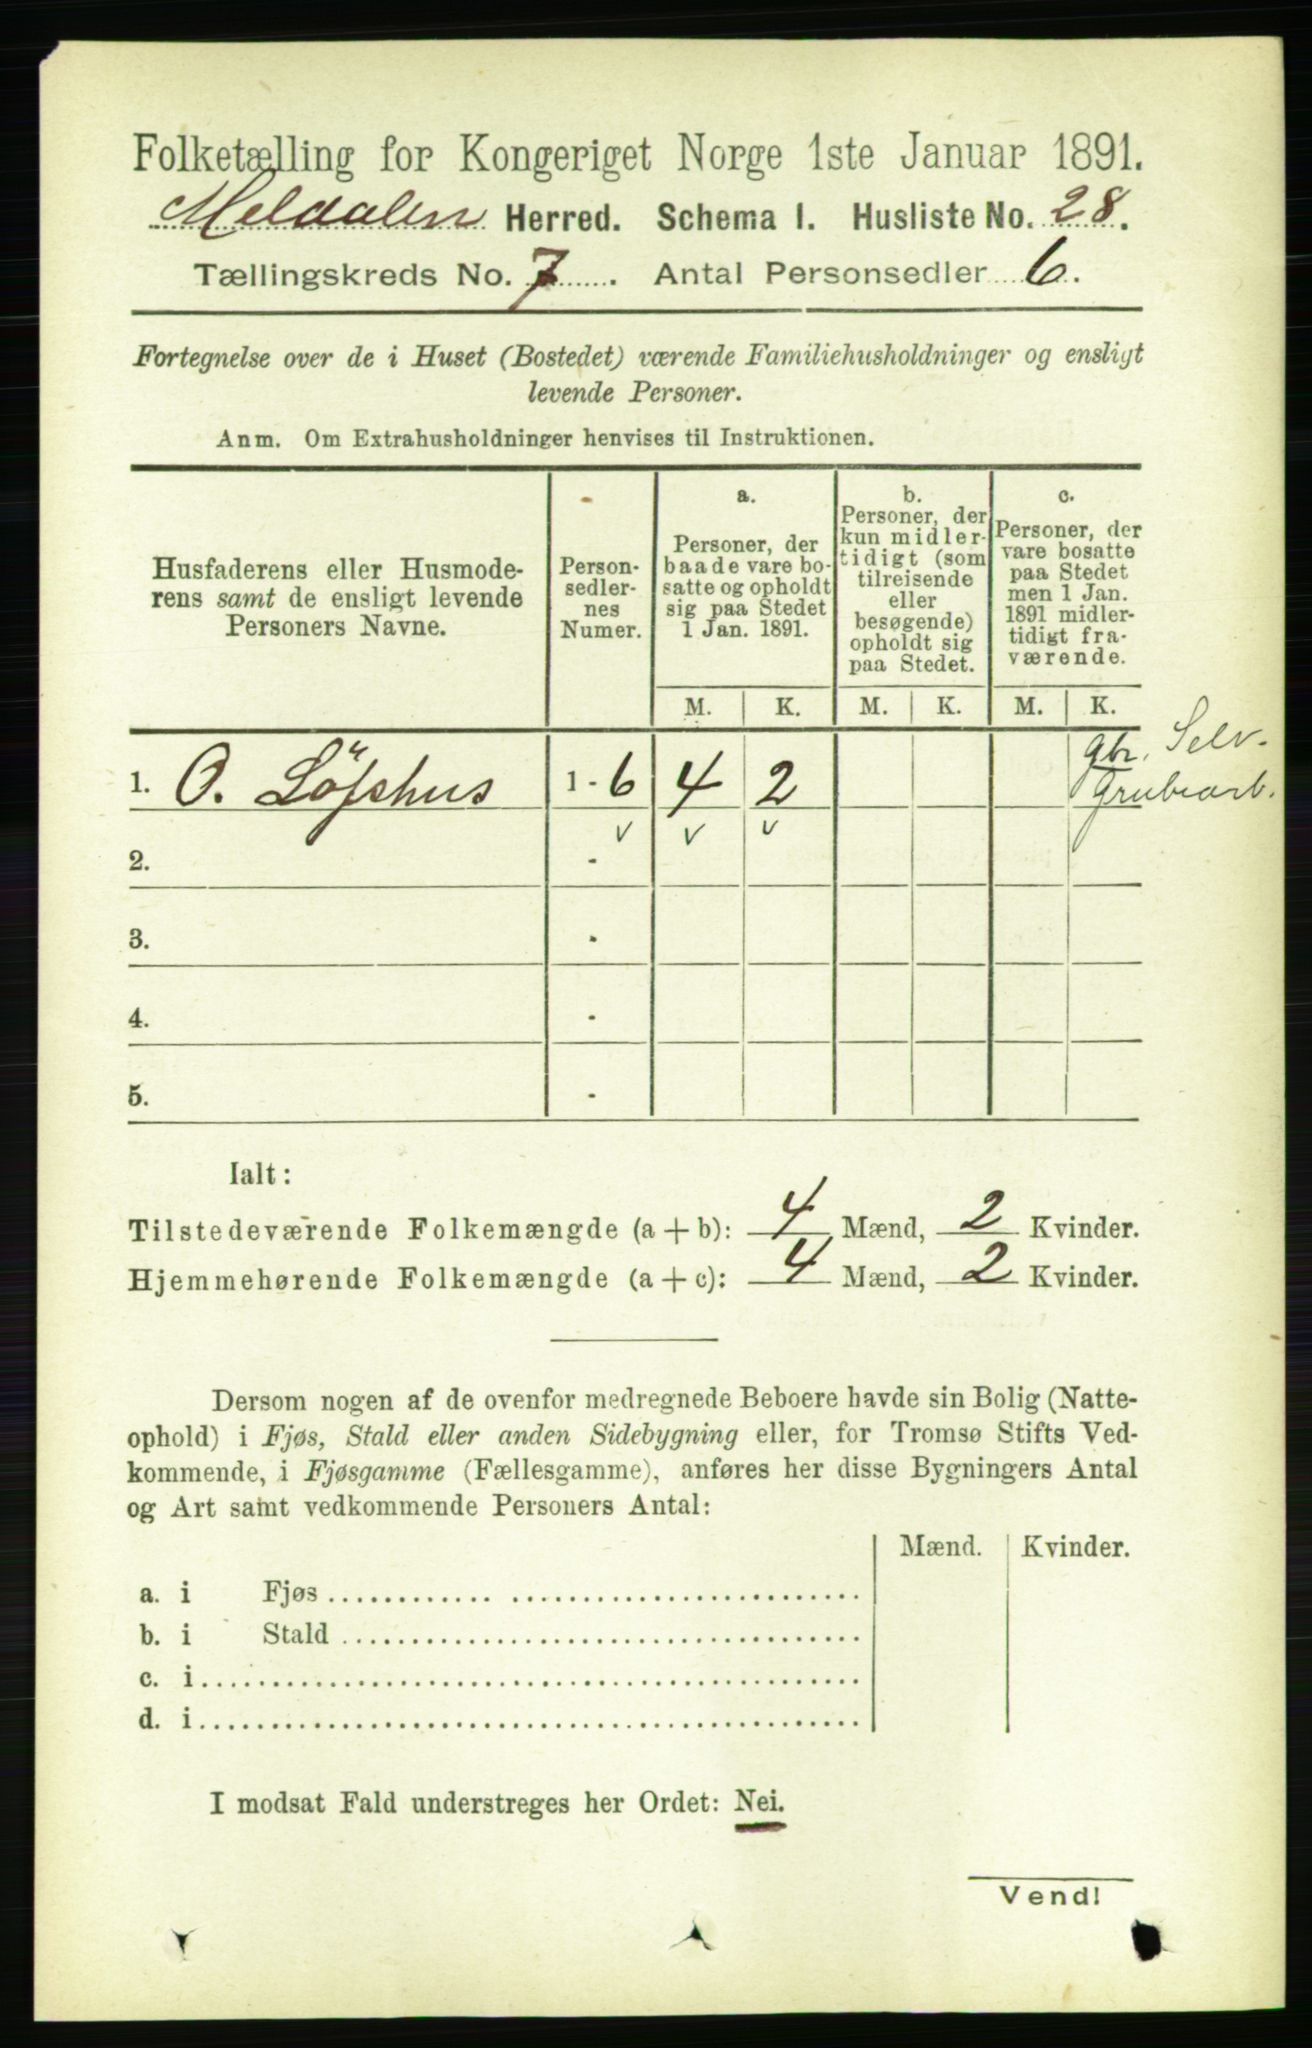 Folketælling for Kongeriget Norge 1ste Januar 1891.
Meldalen Herred. Schema 1. Husliste No. 28.
Tællingskreds No. 7. Antal Personsedler 6.
Fortegnelse over de i Huset (Bostedet) værende Familiehusholdninger og ensligt
levende Personer.
Anm. Om Extrahusholdninger henvises til Instruktionen.
Husfaderens eller Husmode-
rens samt de ensligt levende
Personers Navne.
Person-
sedler-
nes
Numer.
a.
Personer, der
baade vare bo-
satte og opholdt
sig paa Stedet
1 Jan. 1891.
b.
Personer, der
kun midler-
tidigt (som
tilreisende
eller
besøgende)
opholdt sig
paa Stedet.
c.
Personer, der
vare bosatte
paa Stedet
men 1 Jan.
1891 midler-
tidigt fra-
værende.
M. K. M. K. M. K.
Gbr. Selv.
1. O. Löfshus 1 - 6 4 2 Grubearb.
v v v
2. -
3. -
4. -
5. -
Ialt:
Tilstedeværende Folkemængde (a + b): 4 Mænd, 2 Kvinder.
Hjemmehørende Folkemængde (a + c): 4 Mænd, 2 Kvinder.
Dersom nogen af de ovenfor medregnede Beboere havde sin Bolig (Natte-
ophold) i Fjøs, Stald eller anden Sidebygning eller, for Tromsø Stifts Ved-
kommende, i Fjøsgamme (Fællesgamme), anføres her disse Bygningers Antal
og Art samt vedkommende Personers Antal:
Mænd. Kvinder.
a. i Fjøs
b. i Stald
c. i
d. i
I modsat Fald understreges her Ordet: Nei.
Vend!